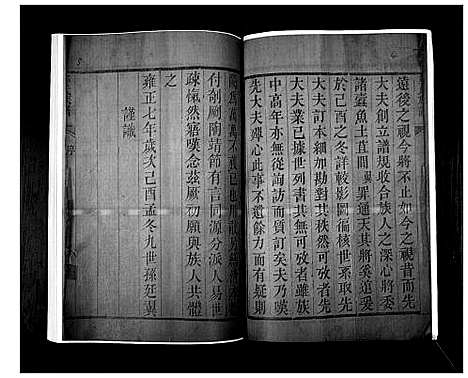 遠後之視今將不止如今之視昔而先
大夫創立譜規收合族人之深心將委
諸蠹魚土苴間廷翼罪通天其將奚逭爰
於己酉之冬詳較影圖徧核世系取先
大夫訂本細加勘對其秩然可攷者先
大夫業已據世列書其無可攷者雖族
中高年亦無從詢訪而質訂矣夫乃嘆
先大夫殫心此事不遺餘力而有疑則
付剞劂陶靖節有言同源分派人易世
疎慨然寤嘆念茲厥初願與族人共體
之
雍正七年歲次己酉孟冬九世孫廷翼
謹識